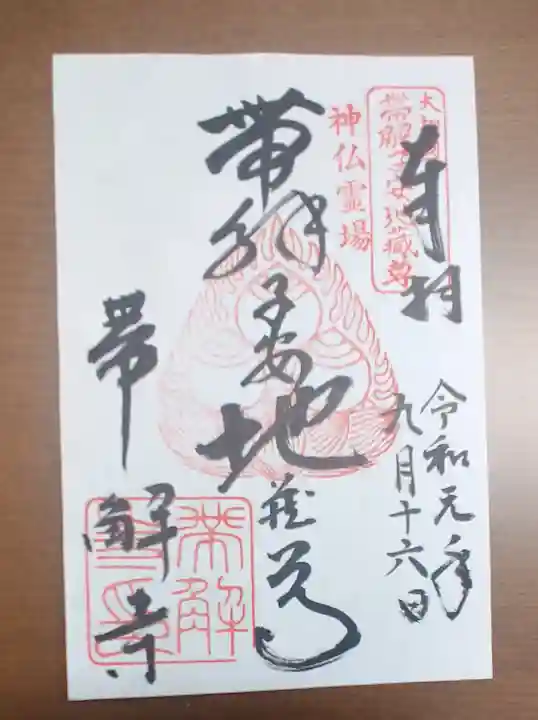 奉拝
令和元年
九月十六日
帯解子安地蔵尊
神仏霊場
帯解子安地蔵尊
帯解寺
帯解
寺印